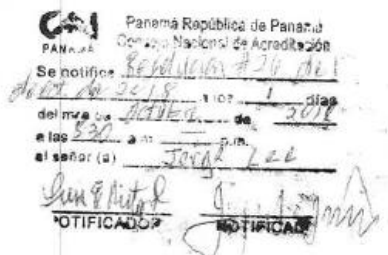 PANAMÁ
Panamá República de Panamá
Consejo Nacional de Acreditación
Se notifica Resolución #26 del
de 2018 a los 1 días
del mes de Octubre de 2018
a las 830 a.m. p.m.
al señor (a) Jorge Lee
NOTIFICADOR NOTIFICAD